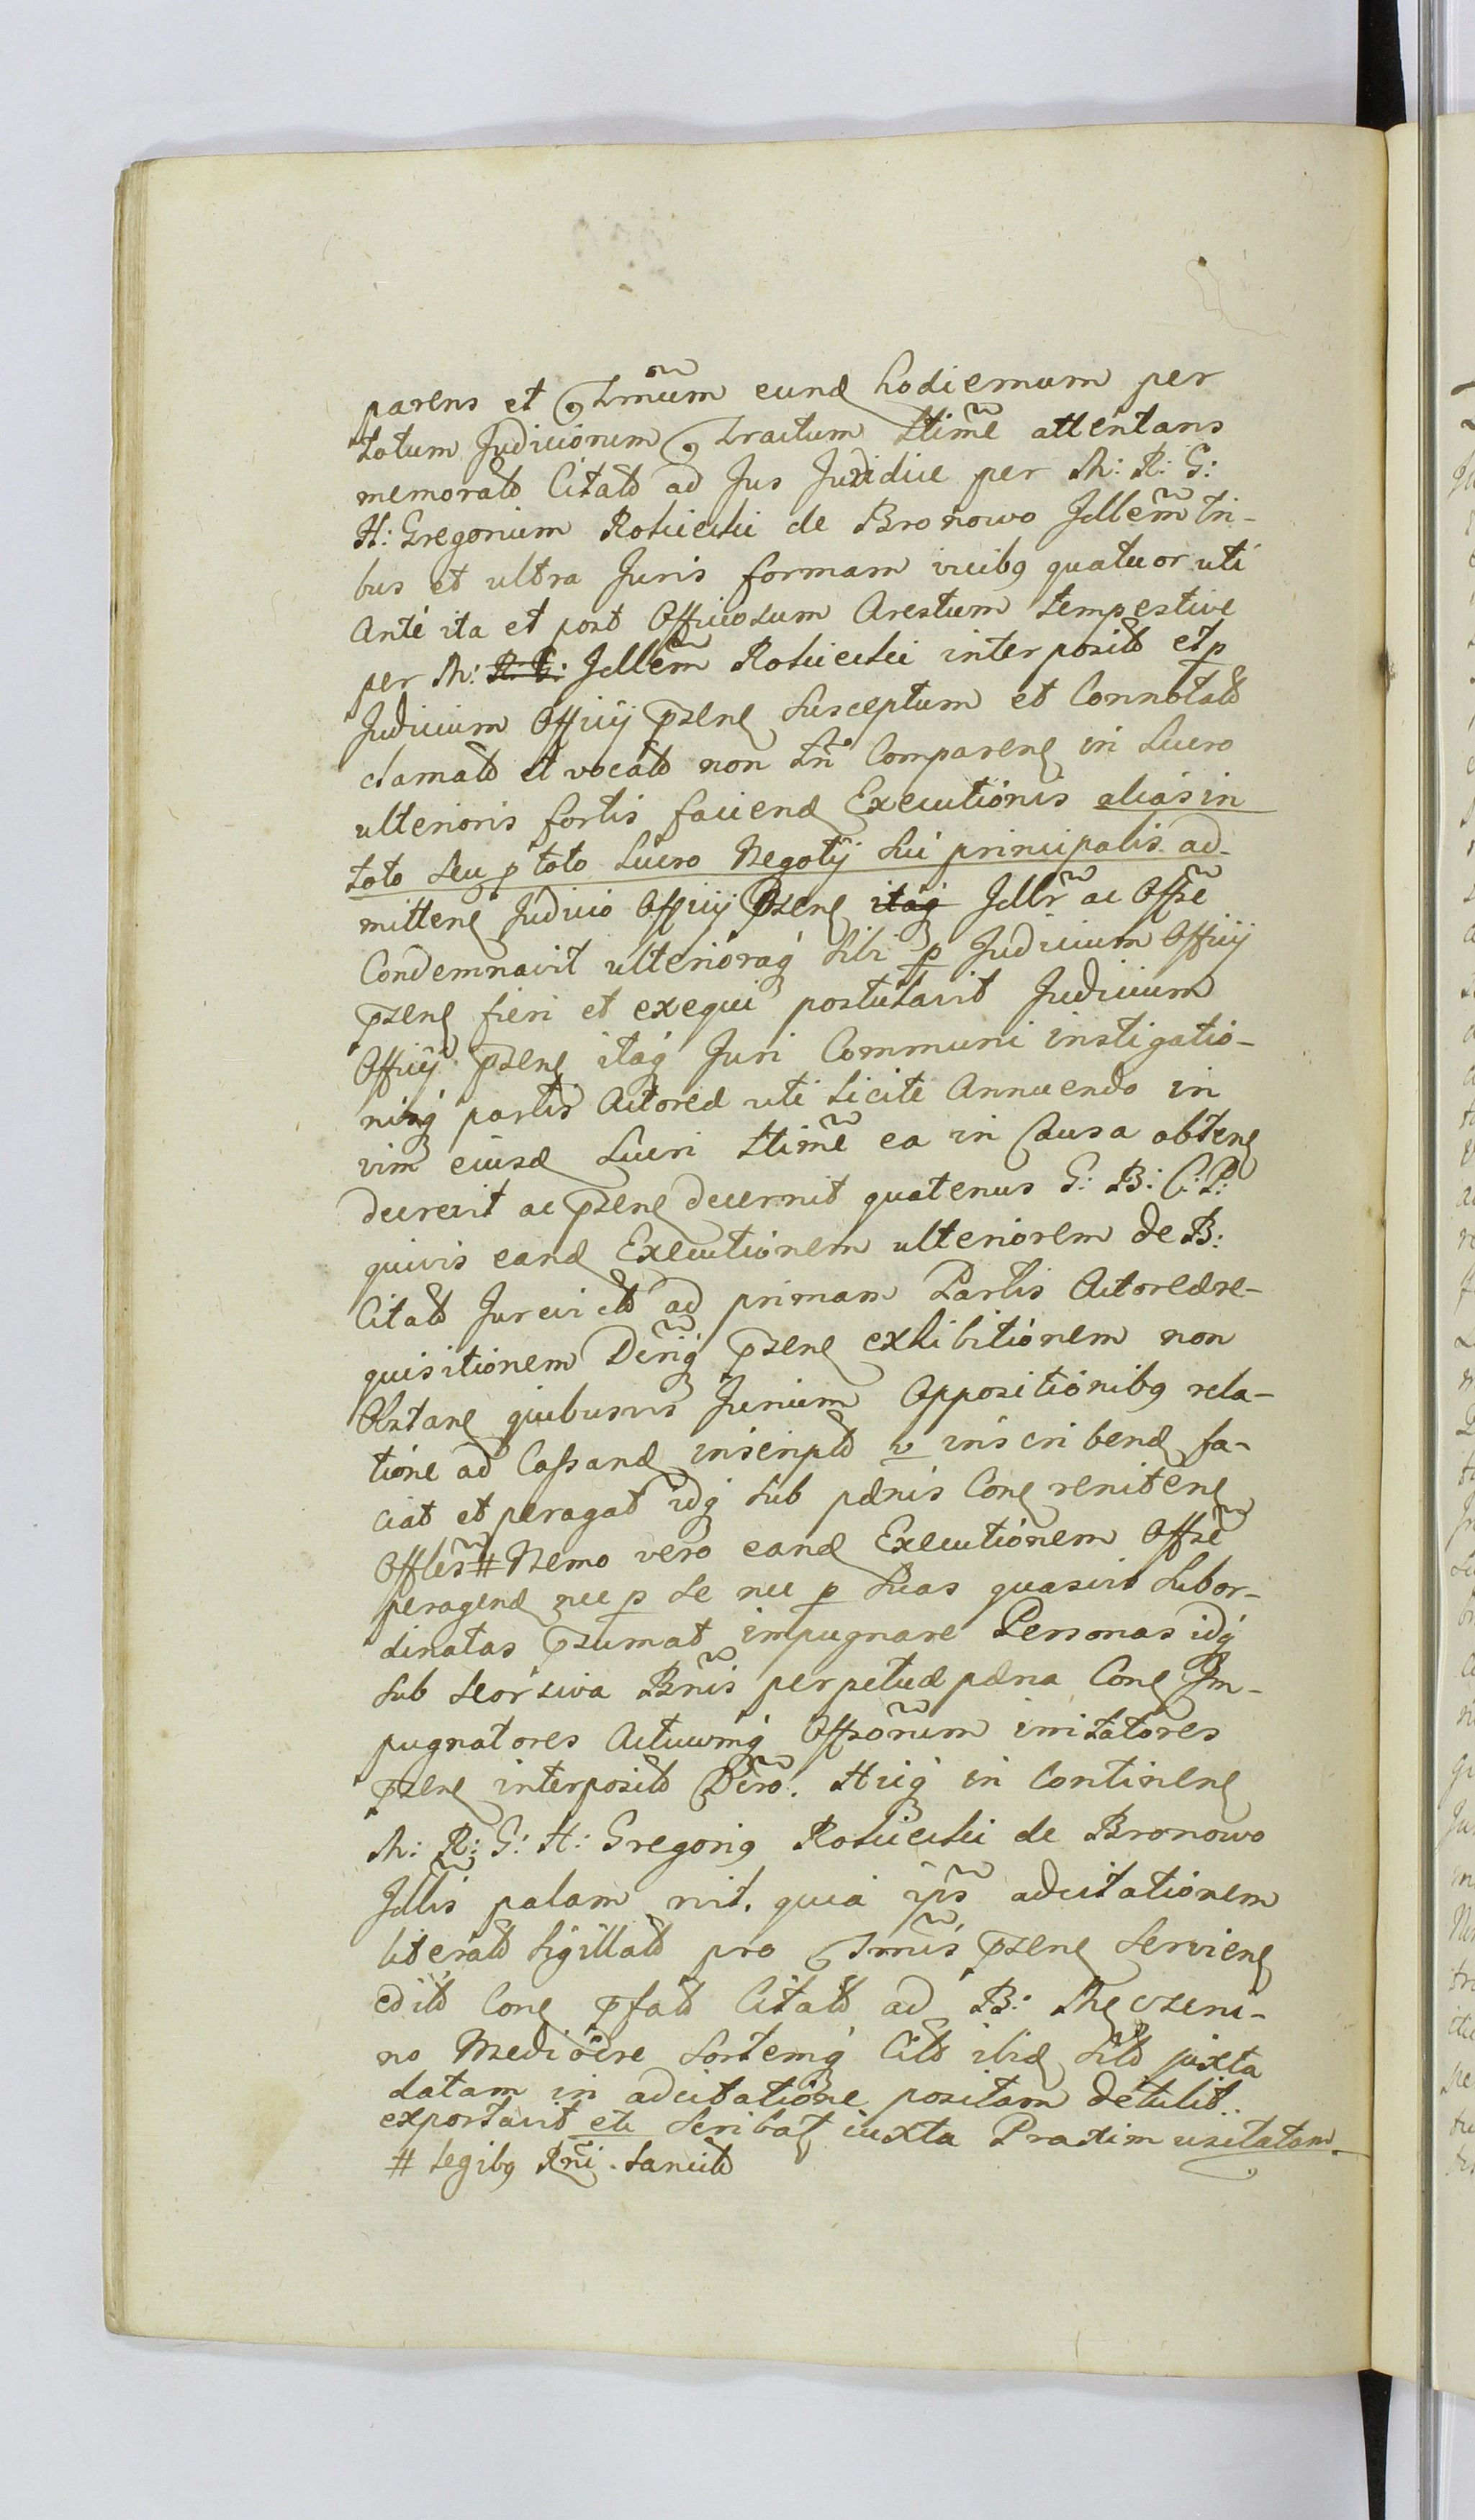 parens et Tm̃um eund hodiernum per
totum Judiciorum Tractum ltimẽ attentans
memorat Citat ad Jus Juridice per M: R: G:
H: Gregorium Rościecki de Bronowo Jdlem̃ tri-
bus et ultra Juris formam vicibq quatuor uti
Ante ita et post Officiosum Arestum tempestive
per M: R: G: Jdlem̃ Rościecki interposit et p
Judicium Officij pzenε susceptum et Connotat
clamat et vocat non tñ Comparenε in Lucro
ulterioris fortis faciend Executionis alias in
toto seu p toto Lucro Negotij sui principalis ad-
mittenε Judicio Officij Pzenε itaq Jdlr̃ ac Offzẽ
Condemnavit ulterioraq sibi p Judicium Officij
pzenε fieri et exequi postulavit Judicium
Officij pzenε itaq Juri Communi instigatio-
nisq partis Actored uti licite Annuendo in
vim eiusd Lucri ltimẽ ea in Causa obtenε
decrevit ac pzenε decernit quatenus G: B: C: P:
quivis eand Executionem ulteriorem de B:
Citat Jurevict ad primam Partis Actored re-
quisitionem Dc̃riq pzenε exhibitionem non
Obstanε quibusvis Jurium Oppositionibq rela-
tione ad Cassand inscript v inscribend fa-
ciat et peragat idq sub pænis Conε renitenε
Offles̃ # Nemo vero eand Executionem Offzẽ
peragend nec p se nec p suas quasvis subor-
dinatas pzumat impugnare Personas idq
sub seorsiva Bñis perpetuæ pæna Conε Im-
pugnatores Actuumq Offzor̃um irritatores
pzenε interposit Dc̃ro. Hicq in Continenε
M: R: G: H: Gregoriq Rościecki de Bronowo
Jdlis̃ palam rvit. quia ips̃ adcitationem
literat Sigillat pro Tmis̃ pzenε Servienε
edit Conε pfat Citat ad B:
no Mediocre Sortemq Cit ibid sit juxta
datam in adcitatione positam detulit.
exportavit etc Scribat iuxta Praxim usitatam
# legibq Rñi sancit